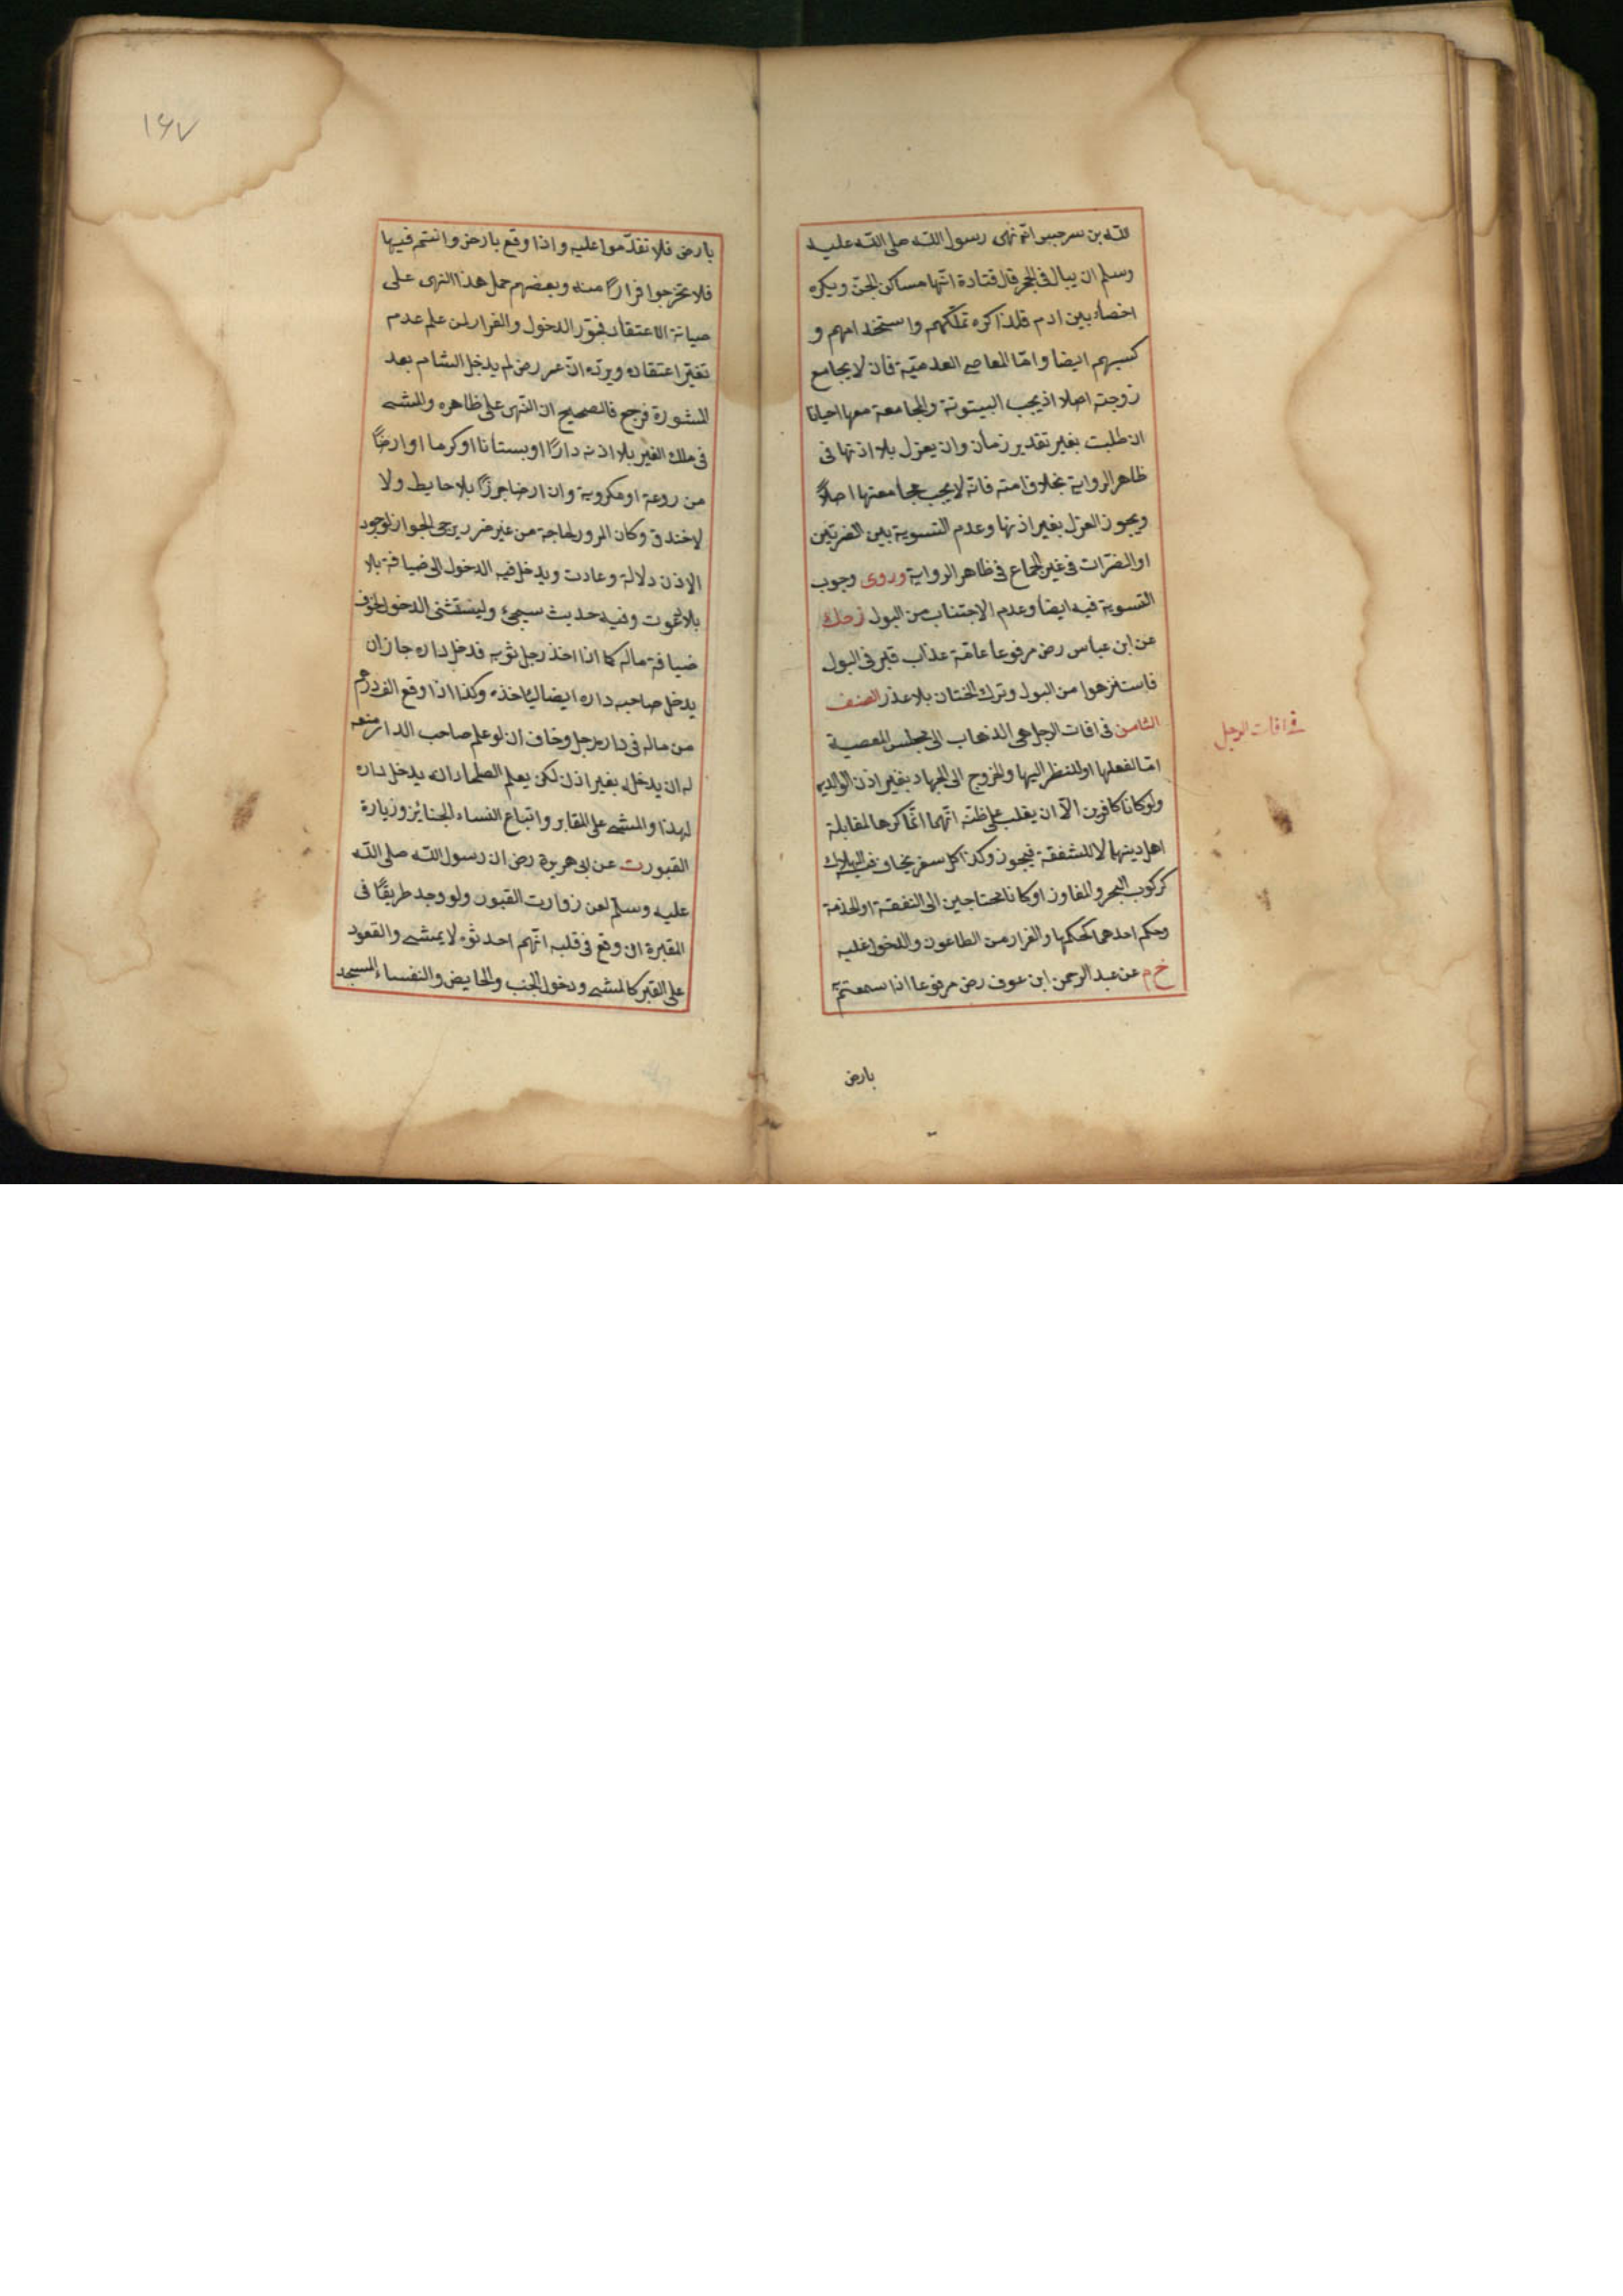 لله بن سرجس انه نهى رسول الله صلى الله عليه
وسلم ان يبال فى الجحر قال قتادة انّها مساكن الجنّ ويكره
اخصاء بين ادم فلذا كره تملّكهم واستخدامهم و
كسبهم ايضا وامّا المعاصى العدميّة فان لا يجامع
زوجته اصلا اذ يجب البيتوتة والمجامعة معها احيانا
ان طلبت بغير تقدير زمان وان يعزل بلا اذنها فى
ظاهر الرواية بخلاف امته فانّه لا يجب مجامعتها اصلاً
ويجوز العزل بغير اذنها وعدم التسوية بين الضرتين
او الضرّات فى غير الجماع فى ظاهر الرواية وروى وجوب
التسوية فيه ايضا وعدم الاجتناب من البول زحك
عن ابن عباس رض مرفوعا عامّة عذاب قبر فى البول
فاستنزهوا من البول وترك الختان بلا عذر الصنف
الثامن فى افات الرجل هى الذهاب الى مجلس المعصية
فى افات الرجل
امّا لفعلها او للنظر اليها والخروج الى الجهاد بغير اذن الوالدين
ولو كانا كافرين الاّ ان يغلب على ظنّه انّهما انّما كرها لمقابلة
اهل دينهما لا للشفقة فيجوز وكذا كل سفر يخاف فيه الهلاك
كركوب البحر والمفاوز او كانا محتاجين الى النفقة او الخدمة
وحكم احدهما كحكمها والفرار من الطاعون والدخول عليه
خ م عن عبد الرحمن ابن عوف رض مرفوعا اذا سمعتم
بارض
١٦٧
بارض فلا تقدّموا عليه واذا وقع بارض وانتم فيها
فلا تخرجوا فراراً منه وبعضهم حمل هذا النهى على
صيانة الاعتقاد فجوّز الدخول والفرار لمن علم عدم
تغيّر اعتقاده ويردّه انّ عمر رض لم يدخل الشام بعد
المشورة فرجع فالصحيح ان النّهى على ظاهره والمشى
فى ملك الغير بلا اذنه داراً او بستانا او كرما او ارضاً
مزروعة او مكروبة وان ارضا جرزاً بلا حايط ولا
لا خندق وكان المرور لحاجة من غير ضرر يرجى الجواز لوجود
الاذن دلالة وعادت ويدخل فيه الدخول الى ضيافة بلا
بلا دعوت وفيه حديث سيجىء وليستثنى الدخول لخوف
ضياعة ماله كما اذا اخذ رجل ثوبه فدخل داره جاز ان
يدخل صاحبه داره ايضا لياخذه وكذا اذا وقع الف درهم
من ماله فى دار رجل وخاف ان لو علم صاحب الدار منعه
له ان يدخله بغير اذن لكن يعلم الصلحاء انه يدخل داره
لهذا والمشى على المقابر واتباع النساء الجنائز وزيارة
القبور ت عن ابى هريرة رض ان رسول الله صلى الله
عليه وسلّم لعن زوارت القبور ولو وجد طريقًا فى
المقبرة ان وقع فى قلبه انّهم احدثوه لا يمشى والقعود
على القبر كالمشى ودخول الجنب والحايض والنفساء المسجد